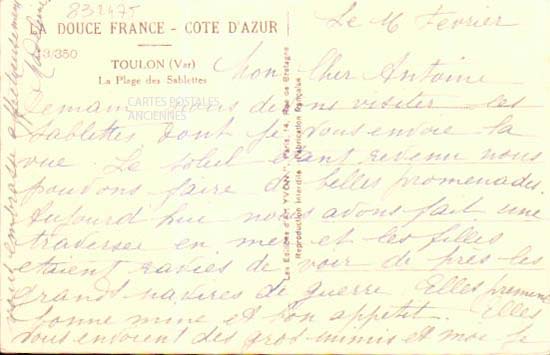 832475
LA DOUCE FRANCE - COTE D'AZUR
13/350
TOULON (Var)
La Plage des Sablettes
CARTES POSTALES
ANCIENNES
Les Editions d'Art YVON, Paris, 14, Rue de Bretagne
Reproduction Interdite - Fabrication française
Le 16 Fevrier
Mon Cher Antoine
Demain nous devons visiter les
Sablettes dont je vous envoie la
vue. Le soleil étant revenu nous
pouvons faire de belles promenades.
Aujourd hui nous avons fait une
traverser en mer et les filles
etaient ravies de voir de pres les
grands navires de guerre. Elles prennent
bonne mine et bon appetit. Elles
vous envoient des gros mimis et moi je
vous embrasse affectueusement
Madeleine